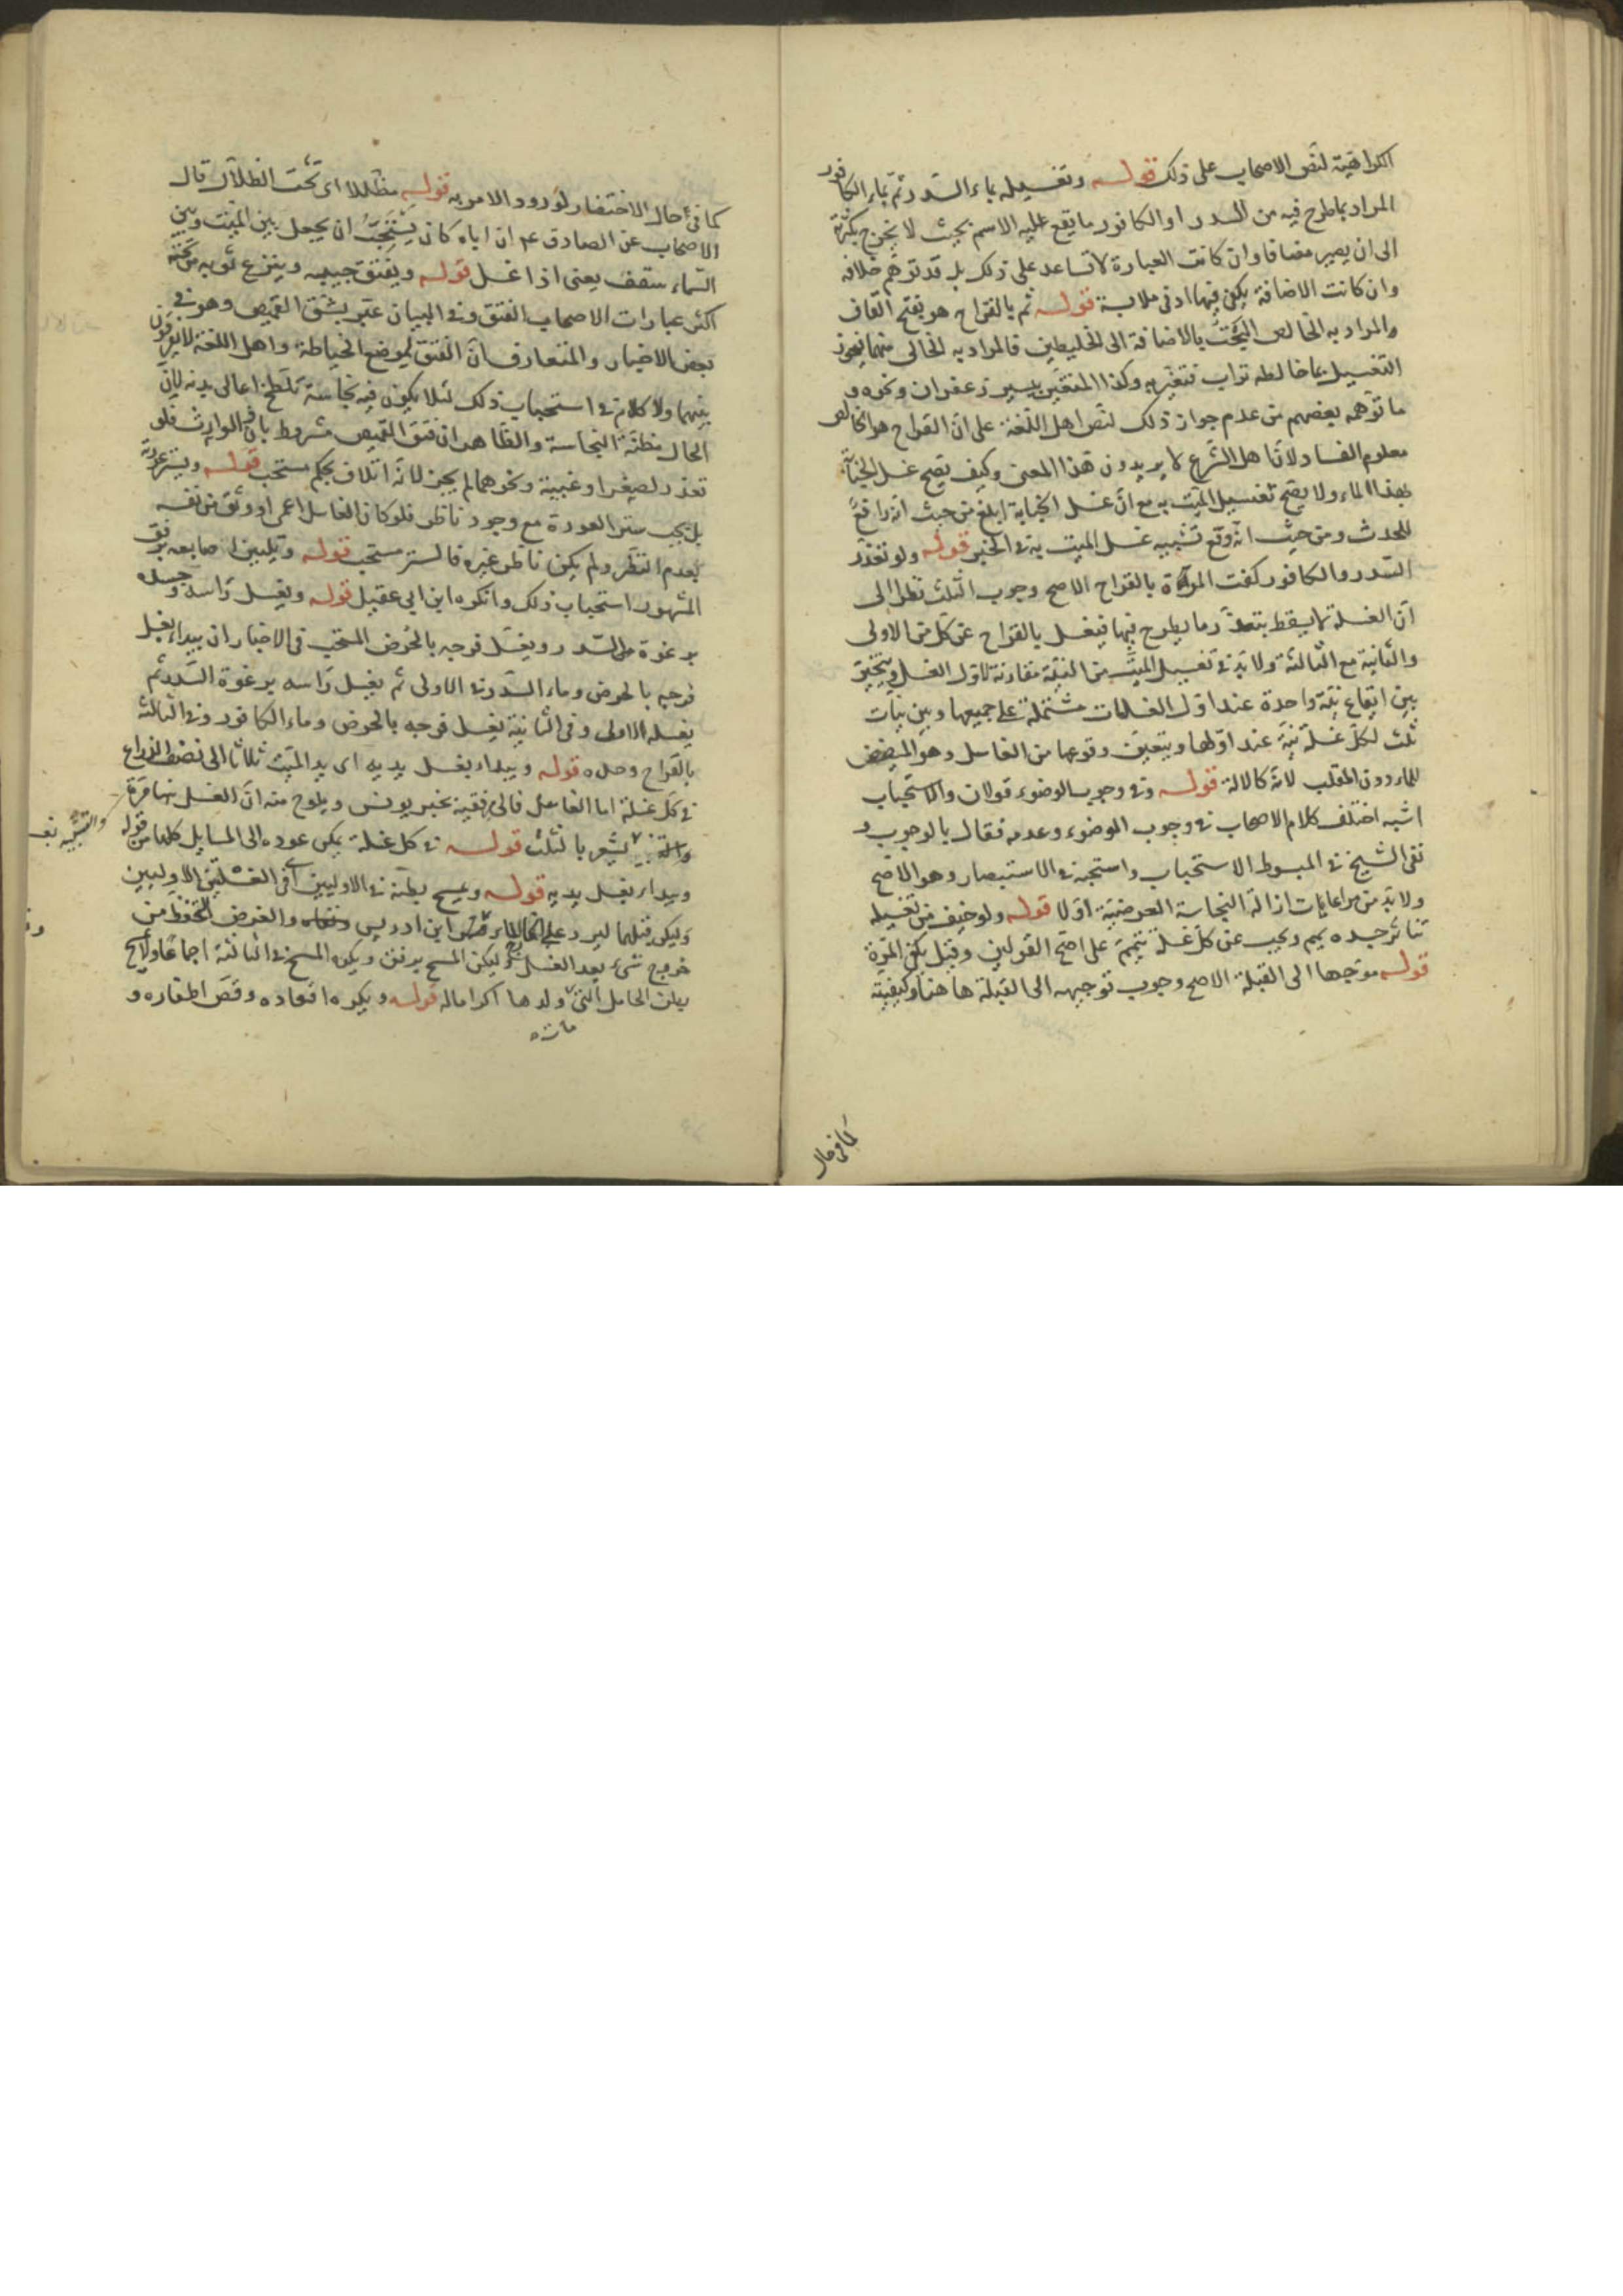 الكراهية لنص الاصحاب على ذلك قوله وتغسيله بماء السدر ثم بماء الكافور
المراد بماطرح فيه من السدر او الكافور ما يقع عليه الاسم بحيث لا يخرج بكثرته
الى ان يصير مضافا وان كانت العبارة لا تساعد على ذلك بل قد توهم خلافه
وان كانت الاضافة يكفي فيها ادنى ملابسة قوله ثم بالقراح هو بفتح القاف
والمراد به الخالص البحت بالاضافة الى الخليطين فالمراد به الخالى منهما فيجوز
التغسيل بما خالطه تراب فتغير به وكذا المتغير بيسير زعفران ونحوه و
ما توهمه بعضهم من عدم جواز ذلك لنص اهل اللغة على ان القراح هو الخالص
معلوم الفساد لان اهل الشرع لا يريدون هذا المعنى وكيف يصح غسل الجنابة
بهذا الماء ولا يصح تغسيل الميت به مع ان غسل الجنابة ابلغ من حيث انه رافع
للحدث ومن حيث انه وقع تشبيه غسل الميت به في الخبر قوله ولو تعذر
السدر والكافور كفت المرة بالقراح الاصح وجوب الثلث نظرا الى
ان الغسلة لا يسقط بتعذر ما يطرح فيها فيغسل بالقراح عن كل من الاولى
والثانية مع الثالثة ولا بد في تغسيل الميت من النية مقارنة لاول الغسل ويتخير
بين ايقاع نية واحدة عند اول الغسلات مشتملة على جميعها وبين نيات
ثلث لكل غسلة نية عند اولها ويتعين وقوعها من الغاسل وهو المفيض
للماء دون المقلب لانه كالالة قوله وفي وجوب الوضوء قولان والاستحباب
اشبه اختلف كلام الاصحاب في وجوب الوضوء وعدمه فقال بالوجوب و
نفى الشيخ في المبسوط الاستحباب واستحبه في الاستبصار وهو الاصح
ولا بد من مراعايات ازالة النجاسة العرضية اولا قوله ولو خيف من تغسيله
تناثر جلده ييمم ويجب عن كل غسلة تيمم على اصح القولين وقيل يكفي المرة
قوله موجها الى القبلة الاصح وجوب توجيهه الى القبلة ها هنا وكيفيته
كما في حال
كما في حال الاحتضار لورود الامر به قوله مظللا اى تحت الظلال قال
الاصحاب عن الصادق ع ان اباه كان يستحب ان يجعل بين الميت وبين
السماء سقف يعنى اذا غسل قوله ويفتق جيبه وينزع ثوبه من تحته
اكثر عبارات الاصحاب الفتق وفي البيان عبر بشق القميص وهو في
بعض الاخبار والمتعارف ان الفتق لموضع الخياطة واهل اللغة لا يفرقون
بينهما ولا كلام في استحباب ذلك لئلا يكون فيه نجاسة تلطخ اعالى بدنه لان
الحال مظنة النجاسة والظاهر ان فتق القميص مشروط باذن الوارث فلو
تعذر لصغر او غيبة ونحوهما لم يجز لانه اتلاف بحكم مستحب قوله ويستر عورته
بل يجب ستر العورة مع وجود ناظر فلو كان الغاسل اعمى او وثق من نفسه
بعدم النظر ولم يكن ناظر غيره فالستر مستحب قوله وتليين اصابعه برفق
المشهور استحباب ذلك وانكره ابن ابى عقيل قوله ويغسل راسه وجسده
برغوة السدر ويغسل فرجه بالحرض المستحب في الاخبار ان يبداء بغسل
فرجه بالحرض وماء السدر في الاولى ثم يغسل راسه برغوة السدر ثم
يغسله الاولى وفى الثانية يغسل فرجه بالحرض وماء الكافور وفي الثالثة
بالقراح وحده قوله ويبداء بغسل يديه اى يد الميت ثلاثا الى نصف الذراع
في كل غسلة اما الغاسل فالى مرفقيه بخبر يونس ويلوح منه ان الغسل مرة
يشعر بالثلث قوله في كل غسلة يمكن عوده الى المسايل كلها من قوله
ويبداء بغسل يديه قوله ويمسح بطنه في الاوليين اى في الغسلتين الاوليين
وليكن قبلهما ابن ادريس والغرض التحفظ من
خروج شىء بعد الغسل وليكن المسح برفق ويكره المسح في الثالثة اجماعا ولا يمسح
بطن الحامل التي ولدها اكراما له قوله ويكره اقعاده وقص اظفاره و
مات